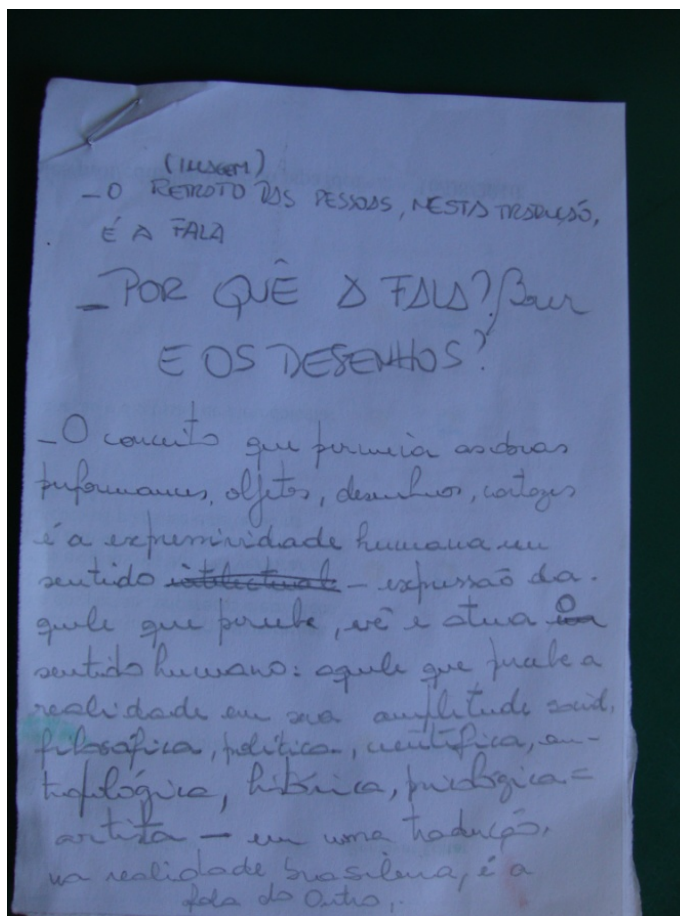 (IMAGEM)
– O RETRATO DAS PESSOAS, NESTA TRADUÇÃO,
É A FALA
– POR QUÊ A FALA?
E OS DESENHOS?
– O conceito que permeia as obras
performances, objetos, desenhos, cartazes
é a expressividade humana em
sentido intelectual – expressão da-
quele que percebe, vê e atua o
sentido humano: aquele que percebe a
realidade em sua amplitude social,
filosófica, política, científica, an-
tropológica, histórica, psicológica =
artista – em uma tradução,
na realidade brasileira, é a
fala do Outro.